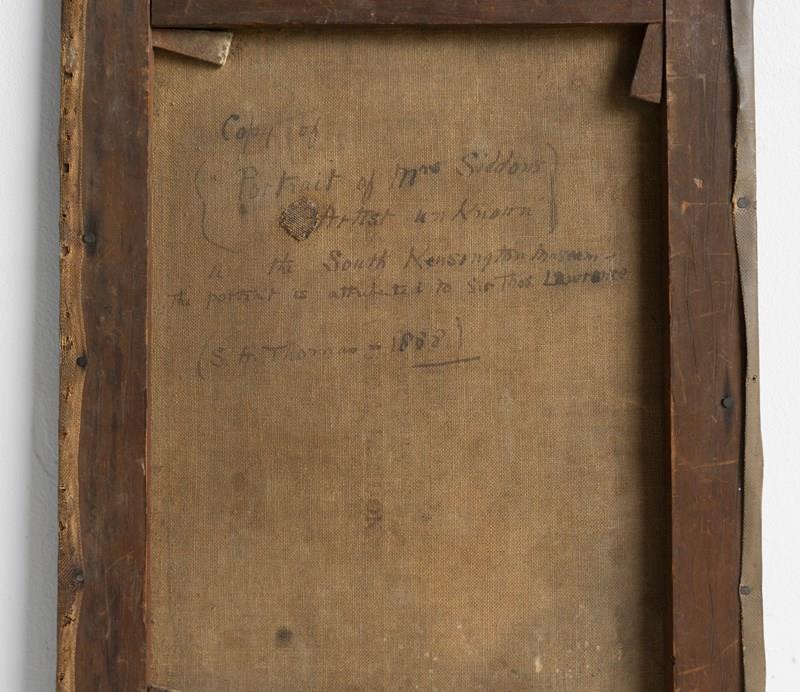 Copy of
Portrait of Mrs Siddons
Artist unknown
the South Kensington Museum -
the portrait is attributed to Sir Thos Lawrence
(S. A. Thomas - 1888)